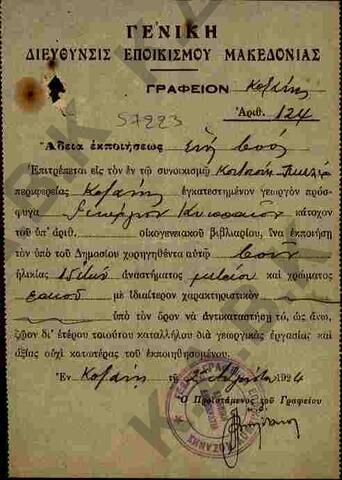 ΓΕΝΙΚΗ
ΔΙΕΥΘΥΝΣΙΣ ΕΠΟΙΚΙΣΜΟΥ ΜΑΚΕΔΟΝΙΑΣ
ΓΡΑΦΕΙΟΝ Κοζάνης
Ἀριθ. 124
57223
Ἄδεια ἐκποιήσεως ἑνὸς βοὸς
Ἐπιτρέπεται εἰς τὸν ἐν τῷ συνοικισμῷ
περιφερείας Κοζάνης ἐγκατεστημένον γεωργὸν πρόσ-
φυγα Γεώργιον κάτοχον
τοῦ ὑπ' ἀριθ. οἰκογενειακοῦ βιβλιαρίου, ἵνα ἐκποιήση
τὸν ὑπὸ τοῦ Δημοσίου χορηγηθέντα αὐτῷ βοῦν
ἡλικίας ἀναστήματος μετρίου καὶ χρώματος
μὲ ἰδιαίτερον χαρακτηριστικὸν
ὑπὸ τὸν ὅρον νὰ ἀντικαταστήσῃ τό, ὡς ἄνω,
ζῷον δι' ἑτέρου τοιούτου καταλλήλου διὰ γεωργικὰς ἐργασίας καὶ
ἀξίας οὐχὶ κατωτέρας τοῦ ἐκποιηθησομένου.
Ἐν Κοζάνῃ τῇ 1924
Ὁ Προϊστάμενος τοῦ Γραφείου